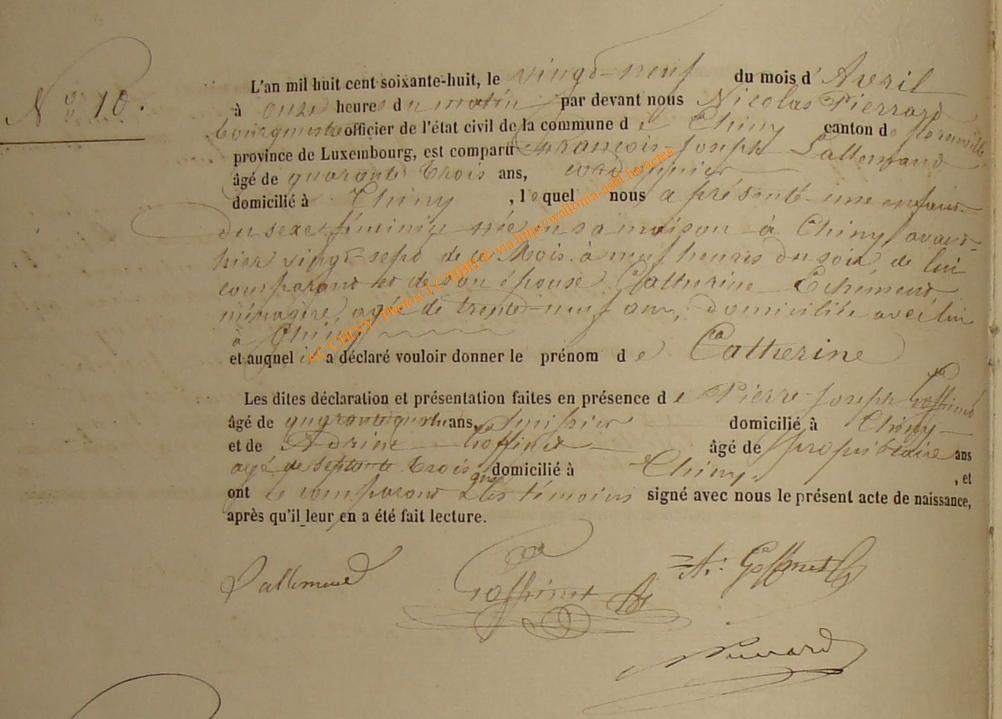 N° 10.
L'an mil huit cent soixante-huit, le vingt-neuf du mois d'Avril
à onze heures du matin par devant nous Nicolas Pierrard
bourgmestre officier de l'état civil de la commune de Chiny canton de florenville
province de Luxembourg, est comparu françois Joseph Lallemand
âgé de quarante trois ans, cordonnier
domicilié à Chiny, lequel nous a présenté une enfant
du sexe féminin née en sa maison à Chiny avant
hier vingt sept de ce mois à neuf heures du soir de lui
comparant et de son épouse Catherine
ménagère, agé de trente-neuf ans, domiciliée avec lui
à Chiny
et auquel il a déclaré vouloir donner le prénom de Catherine
Les dites déclaration et présentation faites en présence de Pierre-Joseph Goffinet
âgé de quarante quatre ans, domicilié à Chiny
et de Goffinet âgé de propriétaire ans
agé de septante trois domicilié à Chiny, et
ont le comparant et les témoins signé avec nous le présent acte de naissance,
après qu'il leur en a été fait lecture.
Lallemand Goffinet A. Goffinet
Pierrard